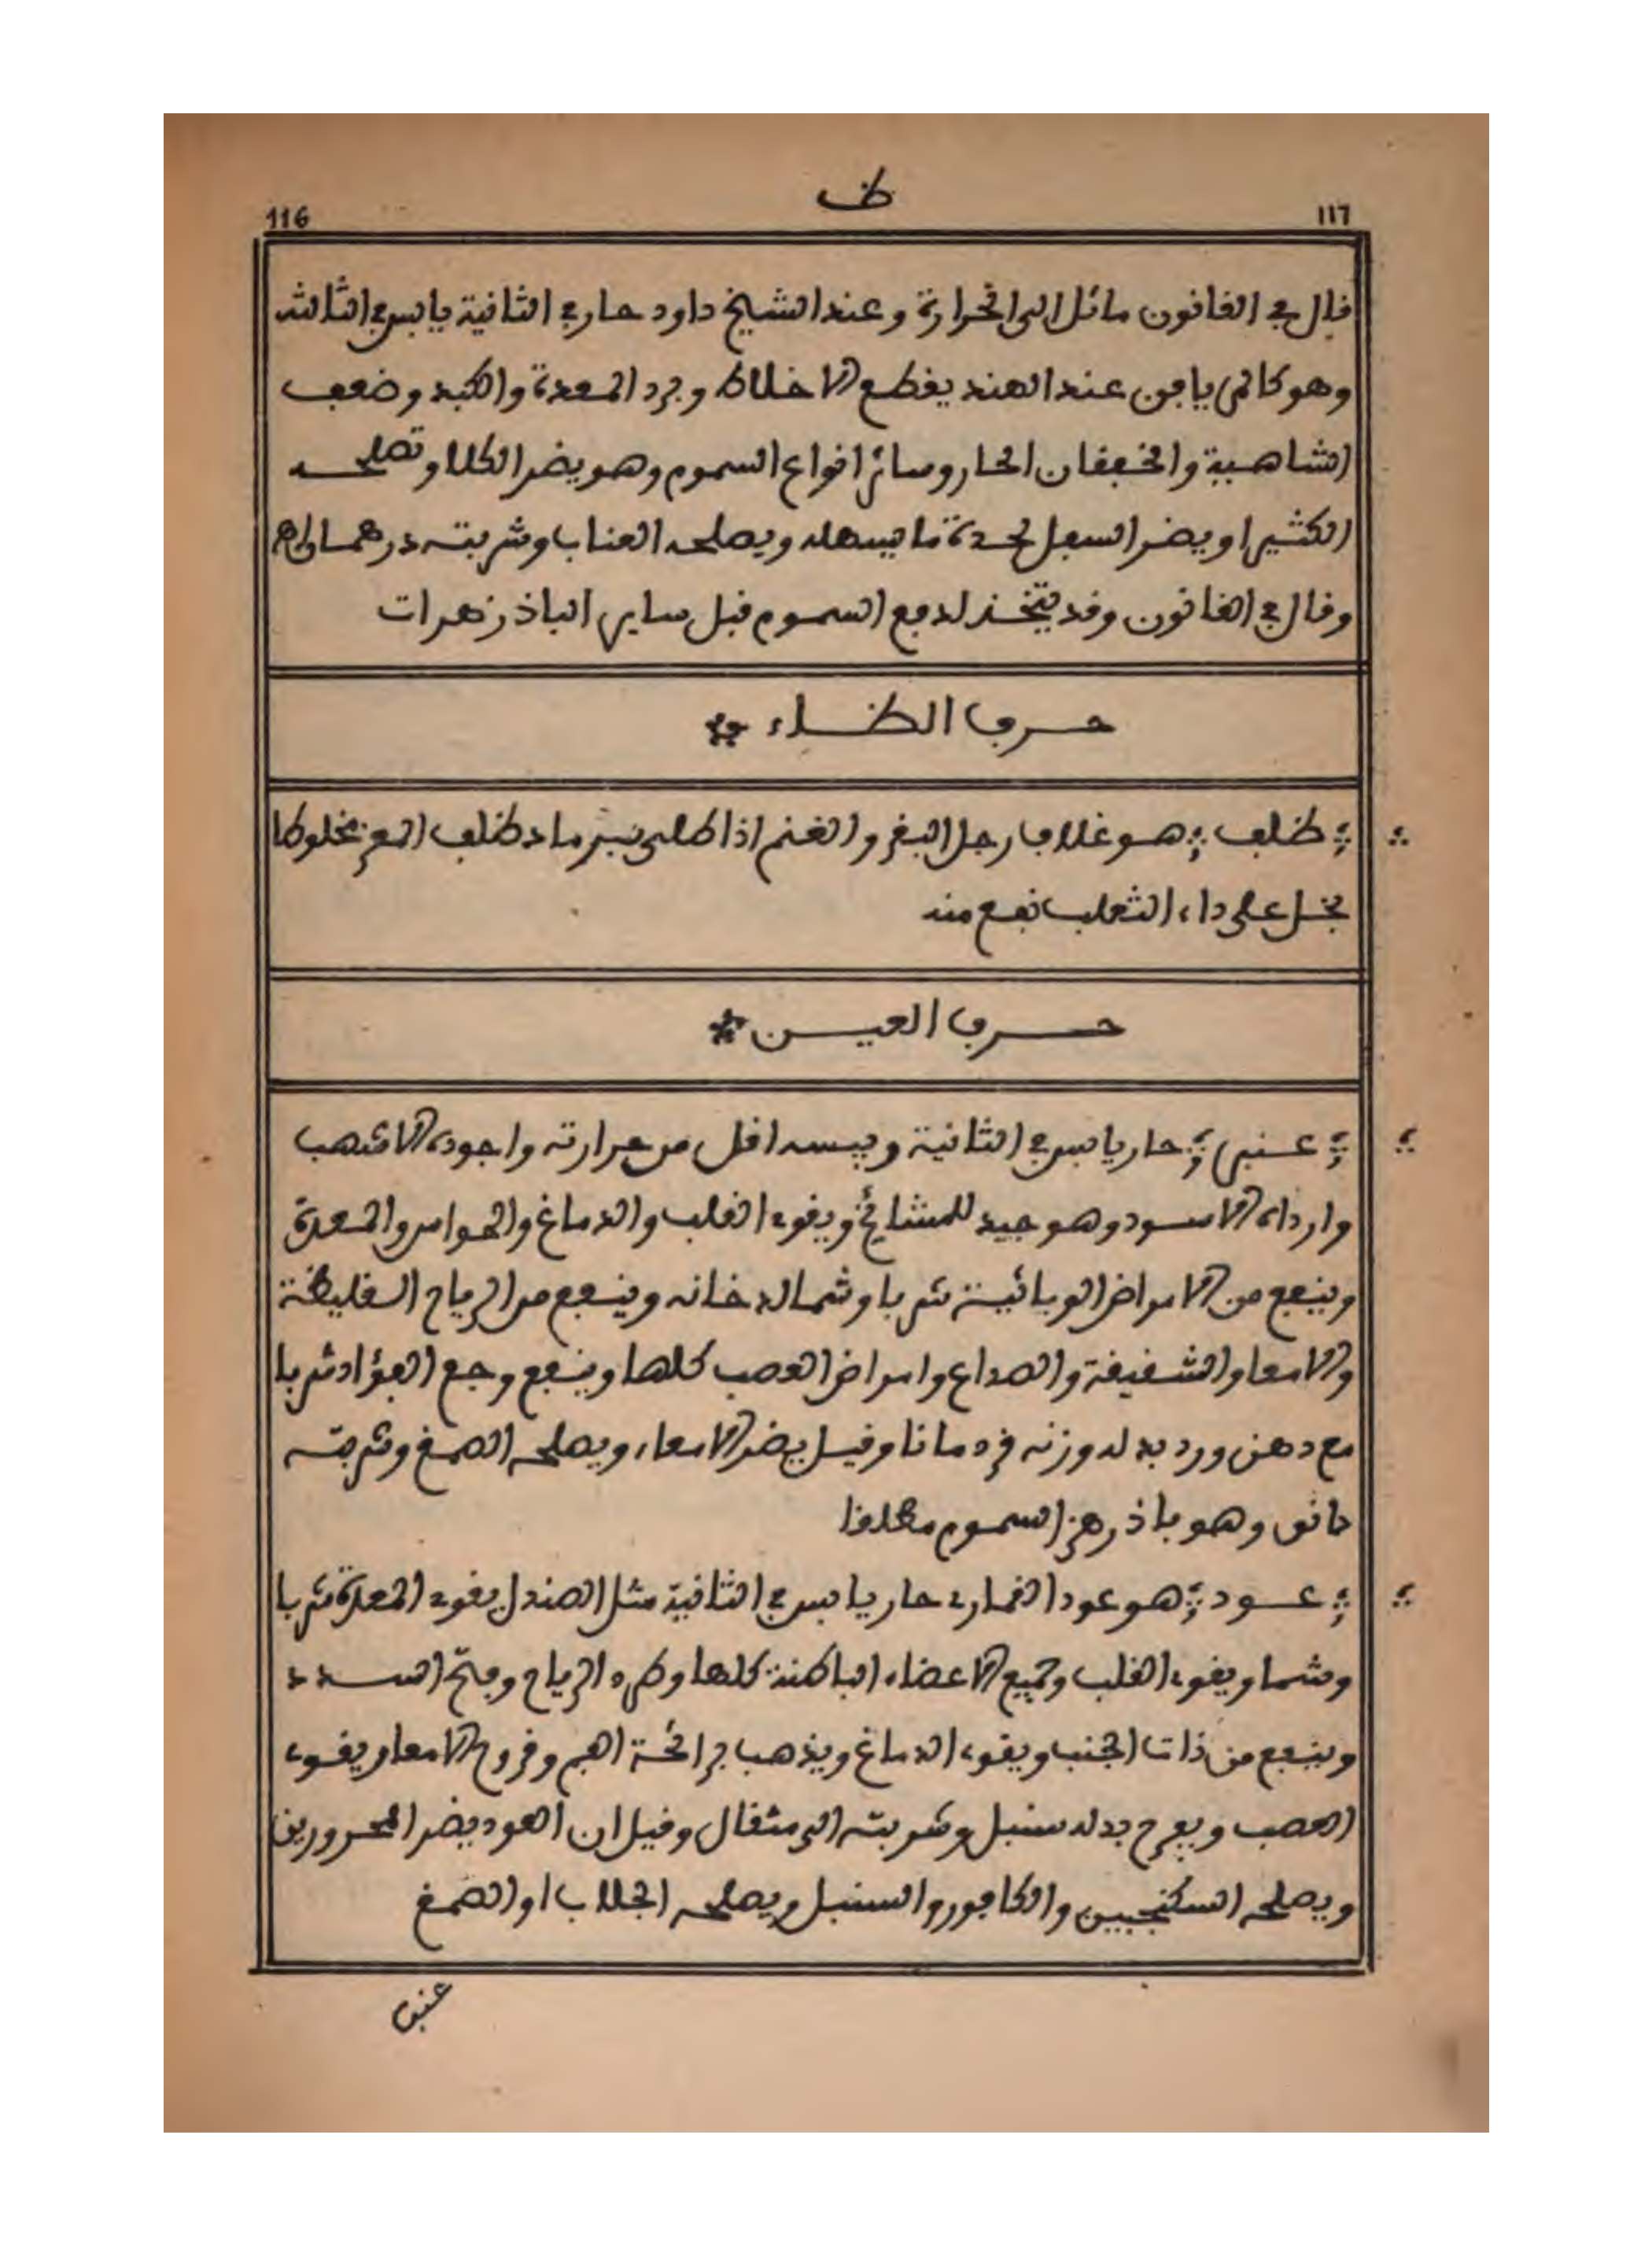 ظ
116 ١١٦
قال في القانون مائل الى الحرارة وعند الشيخ داود حار في الثانية يابس في الثالثة
وهو كالترياق عند الهند يقطع الاخلاط وبرد المعدة والكبد وضعف
الشاهية والخفقان الحار وسائر انواع السموم وهو يضر الكلا وتصلحه
الكثيرا ويضر السفل لحدة ما يسهله ويصلحه العناب وشربته درهما
وقال في القانون وقد يتخذ لدفع السموم قبل ساير الباذزهرات
حرف الظاء
ظلف هو غلاف رجل البقر والغنم اذا طلي برماد ظلف المعز مخلوطا
بخل على داء الثعلب نفع منه
حرف العين
عنبر حار يابس في الثانية ويبسه اقل من حرارته واجوده الاشهب
وارداه الاسود وهو جيد للمشائخ ويقوي القلب والدماغ والحواس والمعدة
وينفع من الامراض الوبائية شربا وشما لدخانه وينفع من الرياح الغليظة
والامعا والشقيقة والصداع وامراض العصب كلها وينفع وجع الفؤاد شربا
مع دهن ورد بدله وزنه قردمانا وقيل يضر الامعاء ويصلحه الصمغ وشربته
دانق وهو باذزهر السموم مطلقا
عود هو عود القماري حار يابس في الثانية مثل الصندل يقوي المعدة شربا
وشما ويقوي القلب وجميع الاعضاء الباطنة كلها وطرد الرياح وفتح السدد
وينفع من ذات الجنب ويقوي الدماغ ويذهب برائحة الفم وقروح الامعا ويقوي
العصب ويفرح بدله سنبل وشربته الى مثقال وقيل ان العود يضر المحرورين
ويصلحه السكنجبين والكافور والسنبل ويصلحه الجلاب او الصمغ
عنب